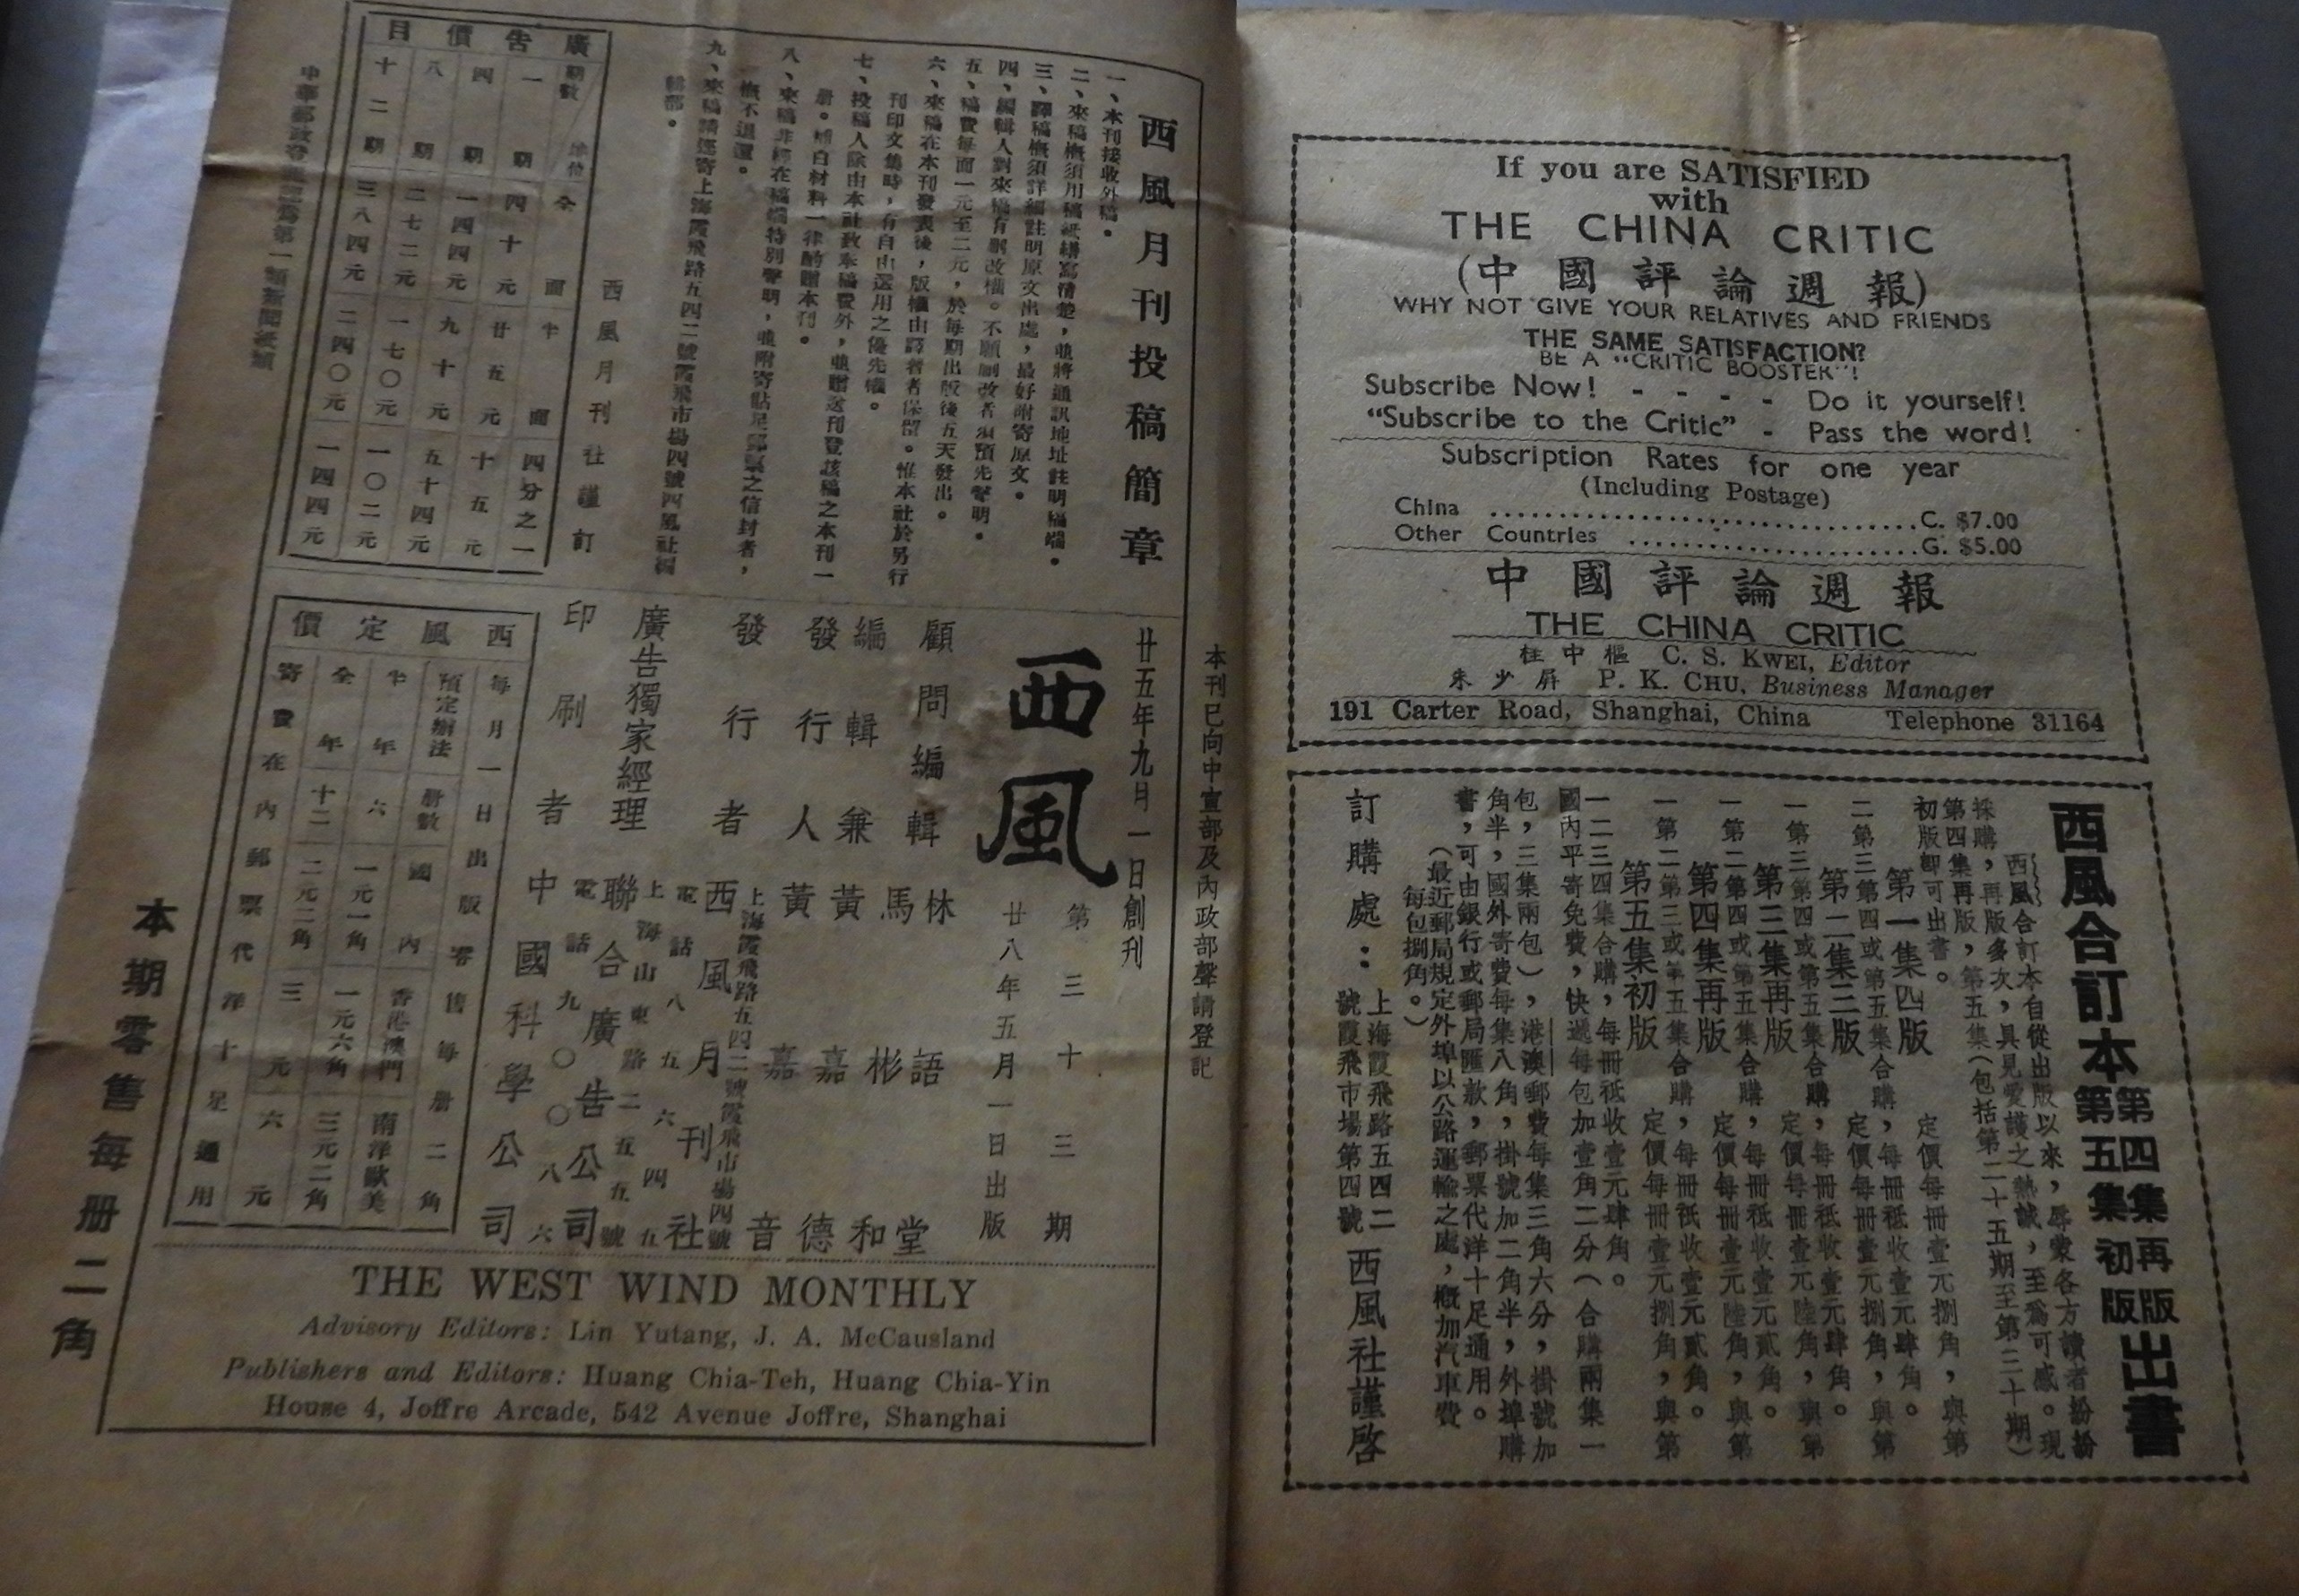 If you are SATISFIED
with
THE CHINA CRITIC
(中國評論週報)
WHY NOT GIVE YOUR RELATIVES AND FRIENDS
THE SAME SATISFACTION?
BE A "CRITIC BOOSTER"!
Subscribe Now! - - - - Do it yourself!
"Subscribe to the Critic" - Pass the word!
Subscription Rates for one year
(Including Postage)
China ................................C. $7.00
Other Countries ......................G. $5.00
中國評論週報
THE CHINA CRITIC
桂中樞 C. S. KWEI, Editor
朱少屏 P. K. CHU, Business Manager
191 Carter Road, Shanghai, China Telephone 31164
西風合訂本第四集再版第五集初版出書
西風合訂本自從出版以來，辱蒙各方讀者紛紛
採購，再版多次，具見愛護之熱誠，至爲可感。現
第四集再版，第五集（包括第二十五期至第三十期）
初版卽可出書。
第一集四版 定價每冊壹元捌角，與第
二第三第四或第五集合購，每冊祗收壹元肆角。
第二集三版 定價每冊壹元捌角，與第
一第三第四或第五集合購，每冊祗收壹元肆角。
第三集再版 定價每冊壹元陸角，與第
一第二第四或第五集合購，每冊祗收壹元貳角。
第四集再版 定價每冊壹元陸角，與第
一第二第三或第五集合購，每冊祗收壹元貳角。
第五集初版 定價每冊壹元捌角，與第
一二三四集合購，每冊祗收壹元肆角。
國內平寄免費，快遞每包加壹角二分（合購兩集一
包，三集兩包），港澳郵費每集三角六分，掛號加
角半，國外寄費每集八角，掛號加二角半，外埠購
書，可由銀行或郵局匯款，郵票代洋十足通用。
（最近郵局規定外埠以公路運輸之處，概加汽車費
每包捌角。）
訂購處：上海霞飛路五四二號霞飛市場第四號 西風社謹啓
本刊已向中宣部及內政部聲請登記
西風月刊投稿簡章
一、本刊接收外稿。
二、來稿概須用稿紙繕寫清楚，並將通訊地址註明稿端。
三、譯稿概須詳細註明原文出處，最好附寄原文。
四、編輯人對來稿有刪改權。不願刪改者須預先聲明。
五、稿費每面一元至二元，於每期出版後五天發出。
六、來稿在本刊發表後，版權由譯著者保留。惟本社於另行
刊印文集時，有自由選用之優先權。
七、投稿人除由本社致奉稿費外，並贈送刊登該稿之本刊一
册。補白材料一律酌贈本刊。
八、來稿非經在稿端特別聲明，並附寄貼足郵票之信封者，
概不退還。
九、來稿請逕寄上海霞飛路五四二號霞飛市場四號西風社編
輯部。
西風月刊社謹訂
廣告價目
期數 地位 全面 半面 四分之一
一期 四十元 廿五元 十五元
四期 一四四元 九十元 五十四元
八期 二七二元 一七〇元 一〇二元
十二期 三八四元 二四〇元 一四四元
廿五年九月一日創刊
西風
第三十三期
廿八年五月一日出版
顧問編輯 林語堂
馬彬和
編輯兼 黃嘉德
發行人 黃嘉音
上海霞飛路五四二號霞飛市場四號
發行者 西風月刊社
電話八五六四五
上海山東路二五五號
廣告獨家經理 聯合廣告公司
電話九〇〇八六
印刷者 中國科學公司
西風定價
每月一日出版零售每册二角
預定辦法 册數 國內 香港澳門 南洋歐美
半年 六 一元一角 一元六角 三元二角
全年 十二 二元二角 三元 六元
寄費在內郵票代洋十足通用
中華郵政
第一類新聞紙類
THE WEST WIND MONTHLY
Advisory Editors: Lin Yutang, J. A. McCausland
Publishers and Editors: Huang Chia-Teh, Huang Chia-Yin
House 4, Joffre Arcade, 542 Avenue Joffre, Shanghai
本期零售每册二角